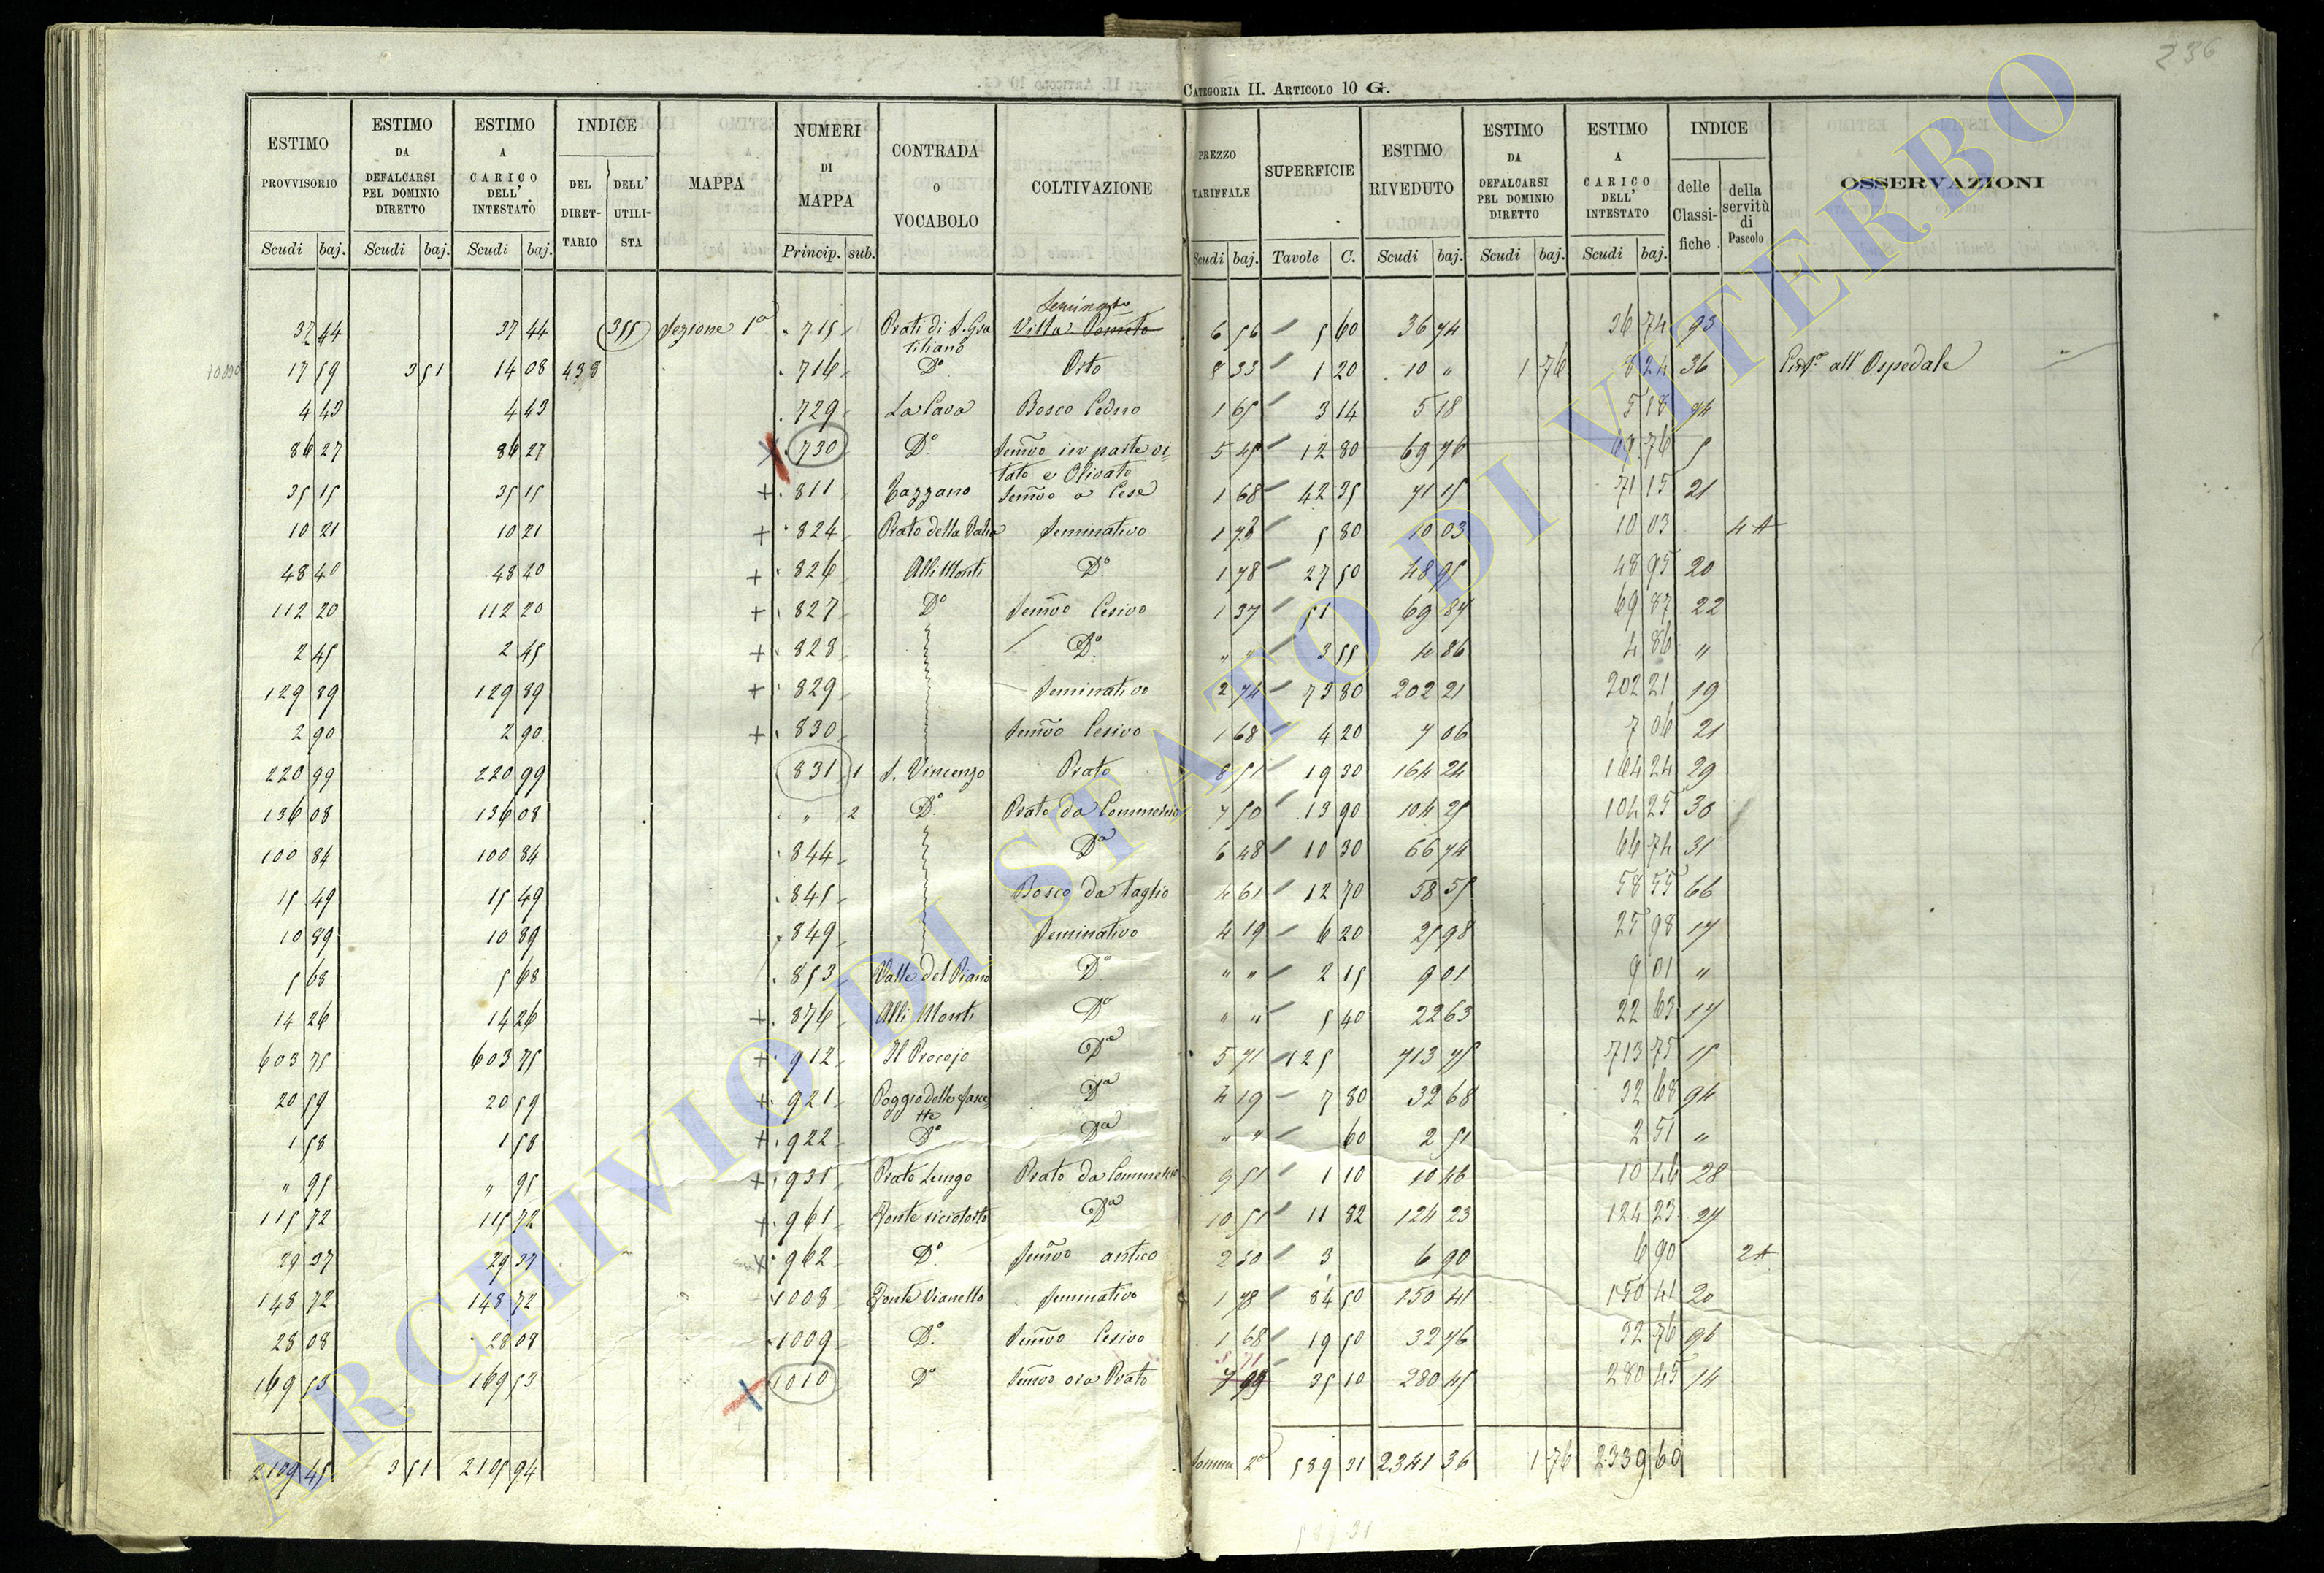 236
CATEGORIA II. ARTICOLO 10 G.
ESTIMO PROVVISORIO Scudi baj. | ESTIMO DA DEFALCARSI PEL DOMINIO DIRETTO Scudi baj. | ESTIMO A CARICO DELL' INTESTATO Scudi baj. | INDICE DEL DIRET-TARIO DELL' UTILI-STA | MAPPA | NUMERI DI MAPPA Princip. sub. | CONTRADA O VOCABOLO | COLTIVAZIONE | PREZZO TARIFFALE Scudi baj. | SUPERFICIE Tavole C. | ESTIMO RIVEDUTO Scudi baj. | ESTIMO DA DEFALCARSI PEL DOMINIO DIRETTO Scudi baj. | ESTIMO A CARICO DELL' INTESTATO Scudi baj. | INDICE delle Classi-fiche della servitù di Pascolo | OSSERVAZIONI
Seminato
37 44 37 44 355 Sezione 1a 715 Prati di S. Gra Villa Pometo 6 56 5 60 36 74 36 74 93
tiliano
17 59 3 51 14 08 438 716 Do Orto 8 33 1 20 10 " 1 76 8 24 36 all' Ospedale
4 43 4 43 729 La Cava Bosco Ceduo 1 65 3 14 5 18 5 18 94
86 27 86 27 730 Do Semvo in parte vi- 5 45 12 80 69 76 69 76 5
tato e Olivato
35 15 35 15 + 811 Cazzano Semvo a Cese 1 68 42 35 71 15 71 15 21
10 21 10 21 + 824 Prato della Seminativo 1 73 5 80 10 03 10 03 4 A
48 40 48 40 + 826 Alli Monti Do 1 78 27 50 48 95 48 95 20
112 20 112 20 + 827 Do Semvo Cesivo 1 37 51 69 87 69 87 22
2 45 2 45 + 828 Do " " 3 55 4 86 4 86 "
129 89 129 89 + 829 Seminativo 2 74 73 80 202 21 202 21 19
2 90 2 90 + 830 Semvo Cesivo 1 68 4 20 7 06 7 06 21
220 99 220 99 831 1 S. Vincenzo Prato 8 51 19 30 164 24 164 24 29
136 08 136 08 " 2 Do Prato da Commercio 7 50 13 90 104 25 104 25 30
100 84 100 84 844 Do 6 48 10 30 66 74 66 74 31
15 49 15 49 845 Bosco da taglio 4 61 12 70 58 55 58 55 66
10 89 10 89 849 Seminativo 4 19 6 20 25 98 25 98 17
5 68 5 68 853 Valle del Piano Do " " 2 15 9 01 9 01 "
14 26 14 26 + 876 Alli Monti Do " " 5 40 22 63 22 63 17
603 75 603 75 + 912 Il Procojo Do 5 71 125 713 75 713 75 15
20 59 20 59 + 921 Poggio delle Do 4 19 7 80 32 68 32 68 94
1 58 1 58 + 922 Do Do " " 60 2 51 2 51 "
" 95 " 95 + 931 Prato Lungo Prato da Commercio 9 51 1 10 10 46 10 46 28
115 72 115 72 + 961 Do 10 51 11 82 124 23 124 23 27
29 37 29 37 962 Do Semvo antico 2 30 3 6 90 6 90 2 A
148 72 148 72 1008 Fonte Vianello Seminativo 1 78 84 50 150 41 150 41 20
28 08 28 08 1009 Do Semvo Cesivo 1 68 19 50 32 76 32 76 96
169 53 169 53 1010 Do Semvo ora Prato 7 99 35 10 280 45 280 45 14
2109 45 3 51 2105 94 Somma 2a 589 31 2341 36 1 76 2339 60
589 31
ARCHIVIO DI STATO DI VITERBO